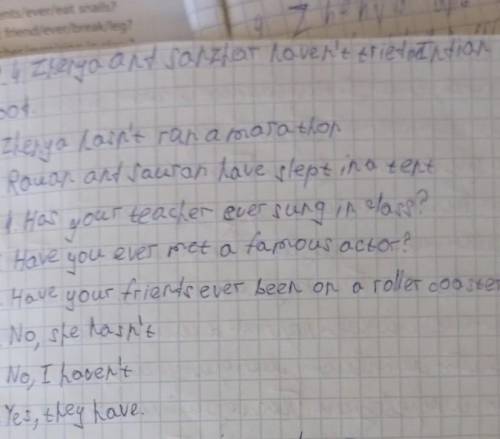 ents/ever/eat snails?
friend/ever/break/leg?
4 Zhenya and Sanzhar haven't tried Indian
oot.
Zhenya hasn't ran a marathon
Rauan and Sauran have slept in a tent
1. Has your teacher ever sung in class?
Have you ever met a famous actor?
Have your friends ever been on a roller coaster
No, she hasn't
No, I haven't
Yes, they have.